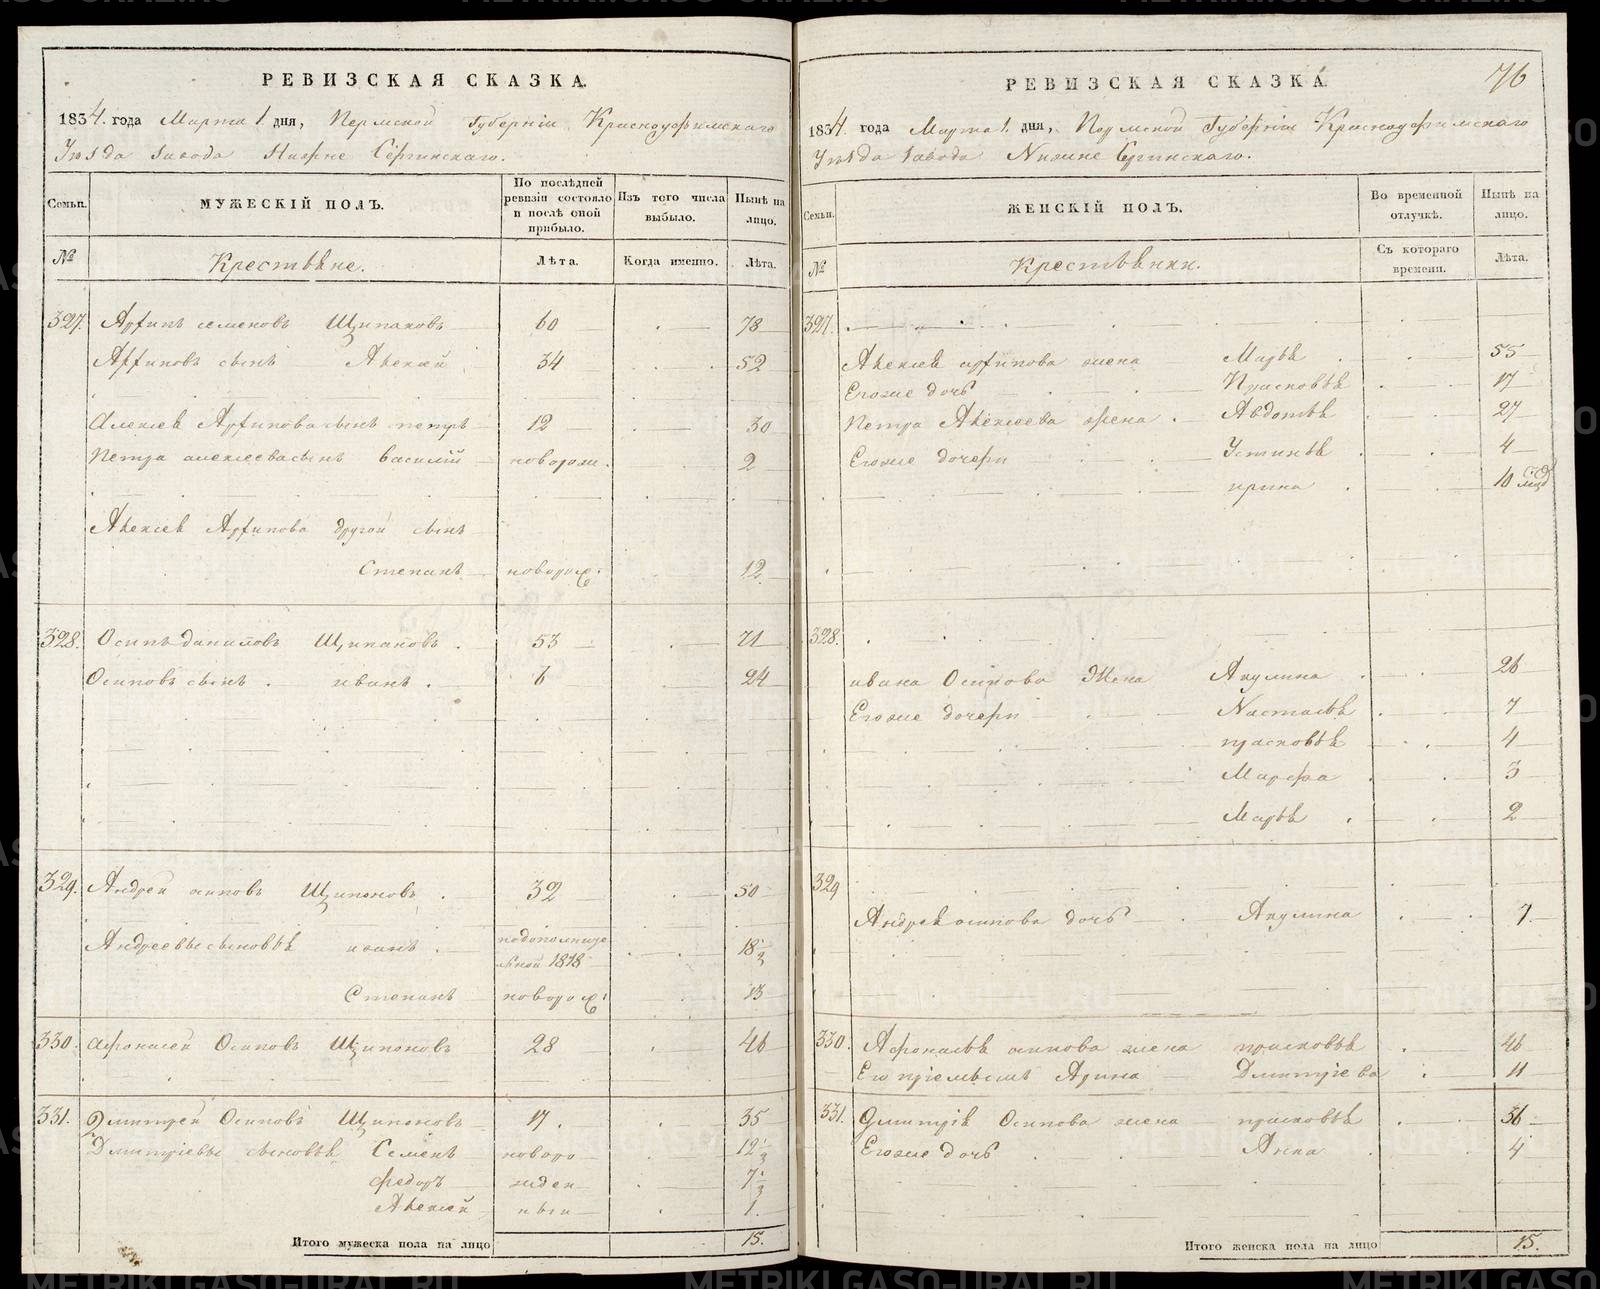 РЕВИЗСКАЯ СКАЗКА.
1834. года Марта 1. дня, Пермской Губерніи Красноуфимскаго
Уѣзда завода Нижне Сергинскаго.
Семьи.
МУЖЕСКІЙ ПОЛЪ.
По послѣдней ревизіи состояло и послѣ оной прибыло.
Изъ того числа выбыло.
Нынѣ на лицо.
№
Крестьяне.
Лѣта.
Когда именно.
Лѣта.
327. Архипъ семеновъ Щипановъ 60 78
Архиповъ сынъ Алексей 34 52
Алексея Архипова сынъ петръ 12 30
Петра алексеева сынъ василій новорож. 2
Алексея Архипова другой сынъ
Степанъ новорож. 12
328. Осипъ даниловъ Щипановъ 53 71
Осиповъ сынъ иванъ 6 24
329. Андрей осиповъ Щипановъ 32 50
Андреевы сыновья иванъ
по дополните
льной 1818
18 1/2
Степанъ новорож. 13
330. Афонасей Осиповъ Щипановъ 28 46
331. Дмитрей Осиповъ Щипановъ 17. 35
Дмитріевы сыновья Семенъ новоро 12 1/2
федоръ жден 7 1/2
Алексей ныи 1.
Итого мужеска пола на лицо 15.
РЕВИЗСКАЯ СКАЗКА. 76
1834 года Марта 1. дня, Пермской Губерніи Красноуфимскаго
Уѣзда завода Нижне Сергинскаго.
Семьи.
ЖЕНСКІЙ ПОЛЪ.
Во временной отлучкѣ.
Нынѣ на лицо.
№
Крестьянки.
Съ котораго времени.
Лѣта.
327.
Алексея архипова жена Марья 55
Его же дочь Прасковья 17
Петра Алексеева жена Авдотья 27
Его же дочери Устинья 4
ирина 10 мцъ
328.
ивана Осипова Жена Акулина 26
Его же дочери Настасья 7
прасковья 4
Марфа 3
Марья 2
329
Андрея осипова дочь Акулина 7.
330. Афонасья осипова жена прасковья 46
Его пріемышъ Арина Дмитріева 11
331. Дмитрія Осипова жена прасковья 36
Его же дочь Анна 4
Итого женска пола на лицо 15.
METRIKI.GASO-URAL.RU